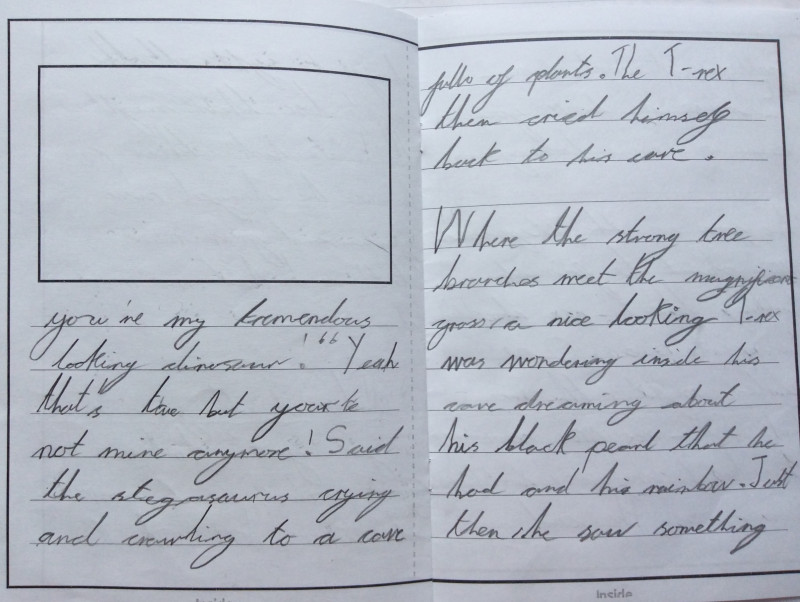 you're my tremendous
looking dinosaur!" Yeah
that's true but your'te
not mine anymore! Said
the stegasaurus crying
and crawling to a cave
Inside
full of plants. The T-rex
then cried himself
back to his cave.
Where the strong tree
branches meet the
grass, a nice looking T-rex
was wondering inside his
cave dreaming about
his black pearl that he
had and his rainbow. Just
then, he saw something
Inside